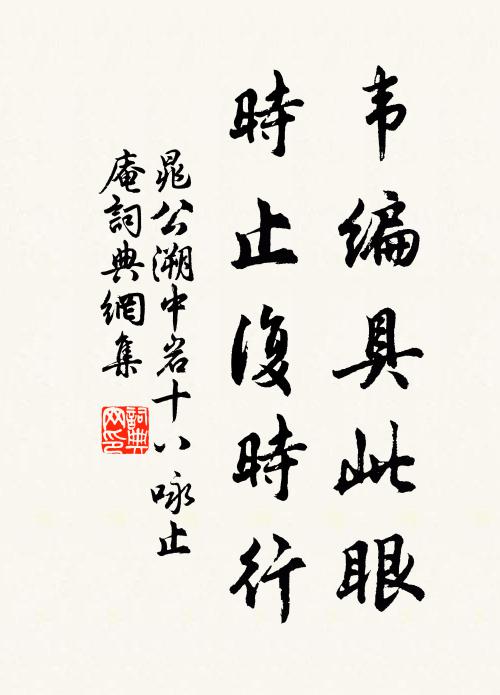 韦编具此眼
時止復時行
晁公溯中岩十八咏止
庵詞典網集
詞典网印